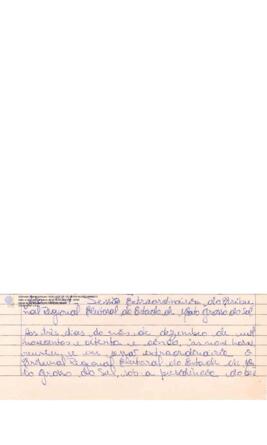 Sessão Extraordinária do Tribu
nal Regional Eleitoral do Estado de Mato Grosso do Sul
Aos três dias do mês de dezembro de mil
novecentos e oitenta e cinco, às nove horas
reuniu-se em sessão extraordinária o
Tribunal Regional Eleitoral do Estado de Ma
to Grosso do Sul, sob a presidência do